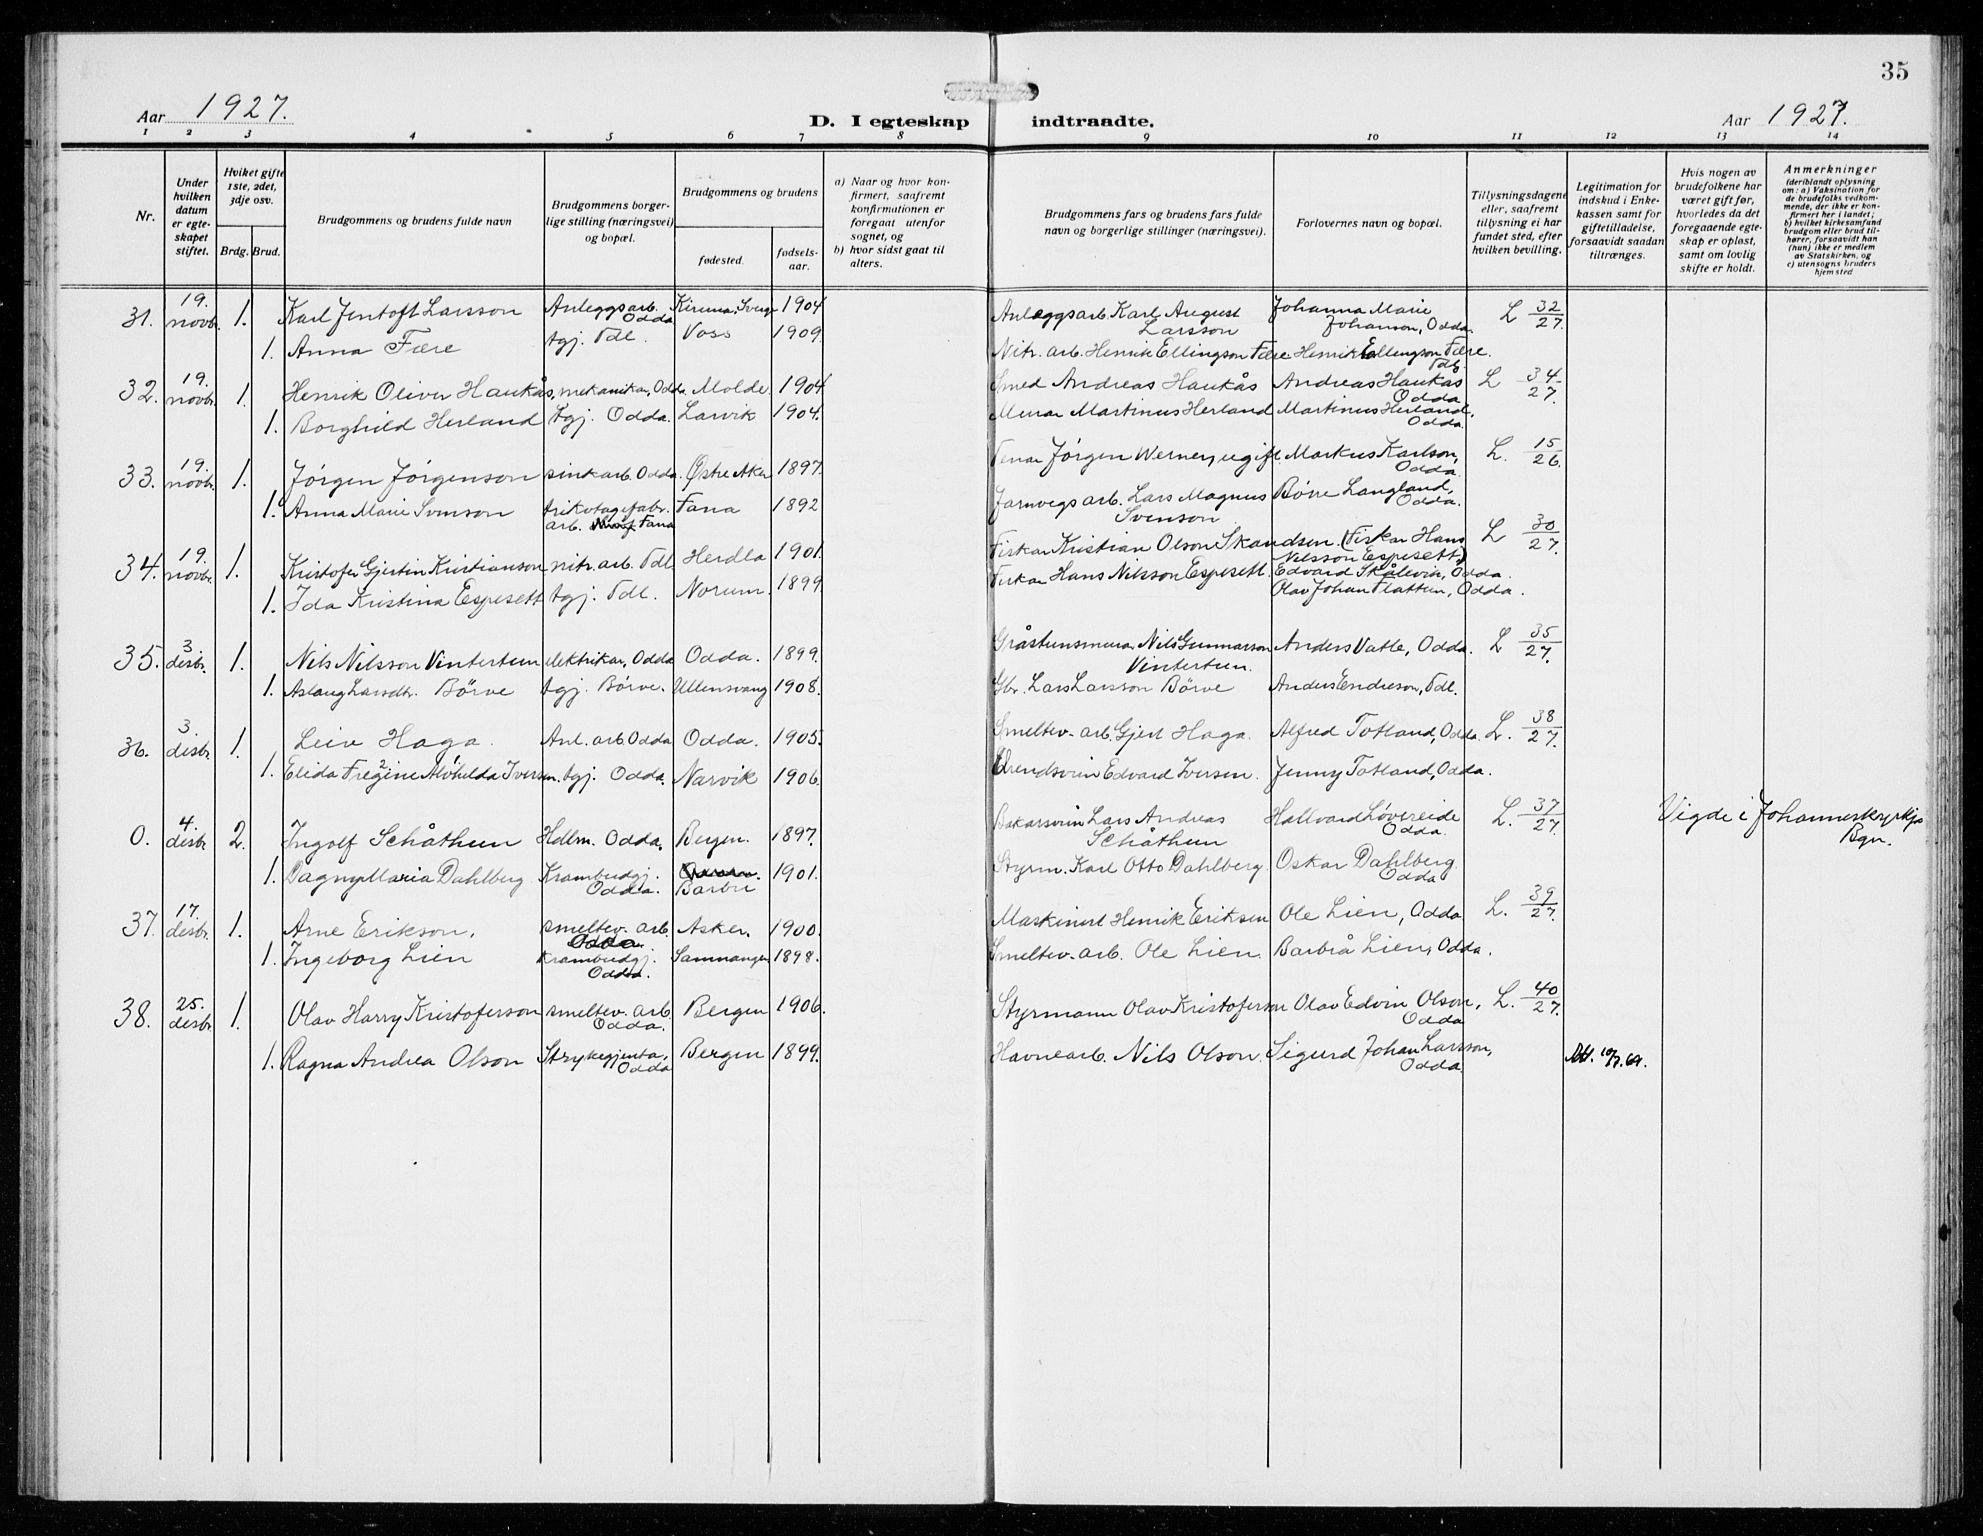 35
Aar 1927.
D. I egteskap indtraadte.
Aar 1927.
1 2 3 4 5 6 7 8 9 10 11 12 13 14
Nr.
Under hvilken datum er egteskapet stiftet.
Hviket gifte 1ste, 2det, 3dje osv.
Brdg. Brud.
Brudgommens og brudens fulde navn
Brudgommens borgerlige stilling (næringsvei) og bopæl.
Brudgommens og brudens
fødested.
fødselsaar.
a) Naar og hvor konfirmert, saafremt konfirmationen er foregaat utenfor sognet, og
b) hvor sidst gaat til alters.
Brudgommens fars og brudens fars fulde navn og borgerlige stillinger (næringsvei).
Forlovernes navn og bopæl.
Tillysningsdagene eller, saafremt tillysning ei har fundet sted, efter hvilken bevilling.
Legitimation for indskud i Enkekassen samt for giftetilladelse, forsaavidt saadan tiltrænges.
Hvis nogen av brudefolkene har været gift før, hvorledes da det foregaaende egteskap er opløst, samt om lovlig skifte er holdt.
Anmerkninger
(deriblandt oplysning om: a) Vaksination for de brudefolks vedkommende, der ikke er konfirmert her i landet; b) hvilket kirkesamfund brudgom eller brud tilhører, forsaavidt han (hun) ikke er medlem av Statskirken, og c) utensogns bruders hjemsted
31. 19. novb. 1. Karl Jentoft Larsson Anleggsarb. Odda Kiruna, Sverge 1904 Anleggsarb. Karl August Larsson Johanna Marie Johanson, Odda. L 32/27.
1. Anna Fære tgj. Tdl. Voss 1909. Nitr. arb. Henrik Ellingson Fære Henrik Ellingson Fære. Tdl.
32. 19. novbr. 1. Henrik Oliver Haukås, mekanikar, Odda Molde 1904 Smed Andreas Haukås Andreas Haukås Odda L 34/27.
1. Borghild Herland Tgj. Odda. Larvik 1904. Murar Martinus Herland Martinus Herland, Odda.
33. 19. novbr. 1. Jørgen Jørgenson sinkarb. Odda. Østre Aker 1897 Tenar Jørgen Werner, ugift. Markus Karlson, Odda. L. 15/26.
1. Anna Marie Svenson trikotagefabr. arb. Fana Fana 1892 Jarnvegsarb. Lars Magnus Svenson Børre Langland, Odda.
34. 19. novbr. 1. Kristofer Gjertin Kristianson nitr. arb. Tdl. Herdla 1901. Fiskar Kristian Olson Skandsen. (Fiskar Hans Nilsson Espesett) L 30/27.
1. Ida Kristina Espesett tgj. Tdl. Norum. 1899 Fiskar Hans Nilsson Espesett. Edvard Skålevin, Odda.
Olav Johan Flattun, Odda.
35. 3. desbr. 1. Nils Nilsson Vintertun elektrikar, Odda Odda. 1899. Gråsteinsmurar Nils Gunnarson Vintertun. Anders Vatle, Odda. L 35/27.
1. Aslaug Larsdtr. Børve tgj. Børve. Ullensvang 1908. Gbr. Lars Larsson Børve Anders Endreson, Tdl.
36. 3. desbr. 1. Leiv Haga. Anl. arb. Odda Odda. 1905. Smeltev. arb. Gjert Haga. Alfred Totland, Odda. L. 38/27.
1. Elida Iversen. tgj. Odda. Narvik 1906. Ærendsvein Edvard Iversen. Jenny Totland, Odda.
0. 4. desbr. 2. Ingolf Schåthun Hdlm. Odda. Bergen. 1897. Bakarsvein Lars Andreas Schåthun Hallvard Løvereide Odda. L. 37/27. Vigde i Johanneskyrkja Bgn.
1. Dagny Maria Dahlberg Krambudgj. Odda. Barbu 1901. Styrm. Karl Otto Dahlberg. Oskar Dahlberg. Odda
37. 17. desbr. 1. Arne Erikson. smeltev. arb. Odda Asker. 1900. Maskinist Henrik Eriksen Ole Lien, Odda L. 39/27.
1. Ingeborg Lien Krambudgj. Odda. Samnanger 1898. Smeltev. arb. Ole Lien. Barbrå Lien, Odda.
38. 25. desbr. 1. Olav Harry Kristoferson smeltev. arb. Odda. Bergen 1906. Styrmann Olav Kristoferson Olav Edvin Olson, Odda L. 40/27.
1. Ragna Andrea Olson Strykegjenta, Odda Bergen 1899. Havnearb. Nils Olson. Sigurd Johan Larsson, Odda.